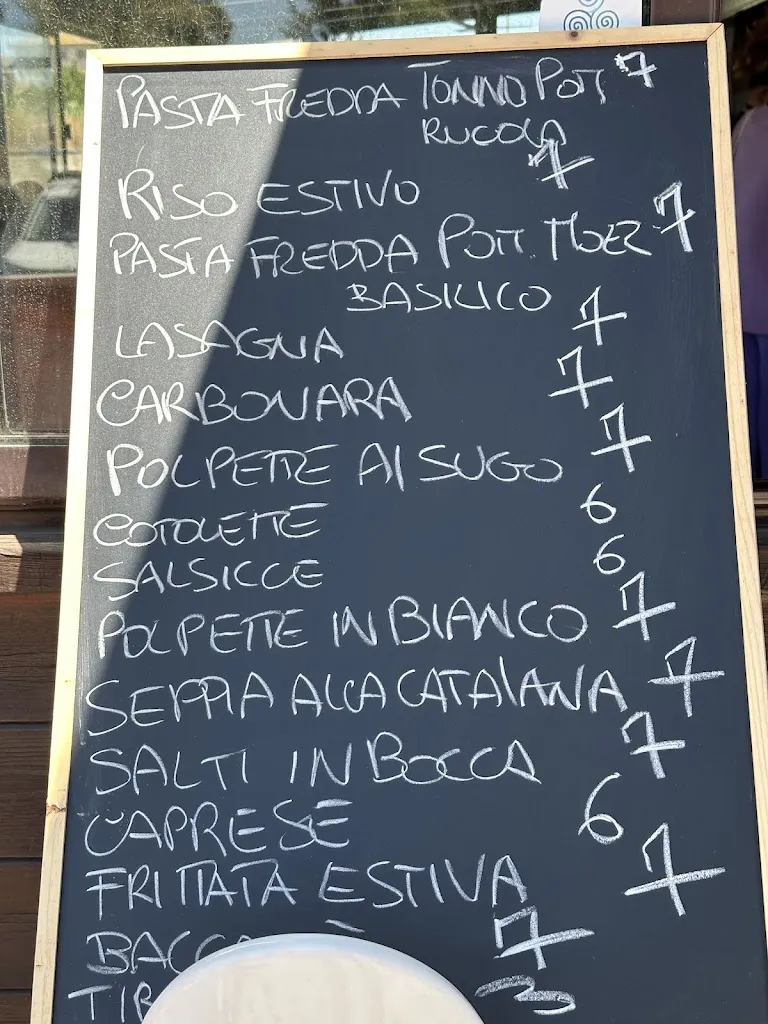 PASTA FREDDA TONNO POM 7
RUCOLA
RISO ESTIVO 7
PASTA FREDDA POM MOZZ 7
BASILICO
LASAGNA 7
CARBONARA 7
POLPETTE AI SUGO 7
COTOLETTE 6
SALSICCE 6
POLPETTE IN BIANCO 7
SEPPIA ALLA CATALANA 7
SALTI IN BOCCA 7
CAPRESE 6
FRITTATA ESTIVA 7
BACCA 7
TIR 3